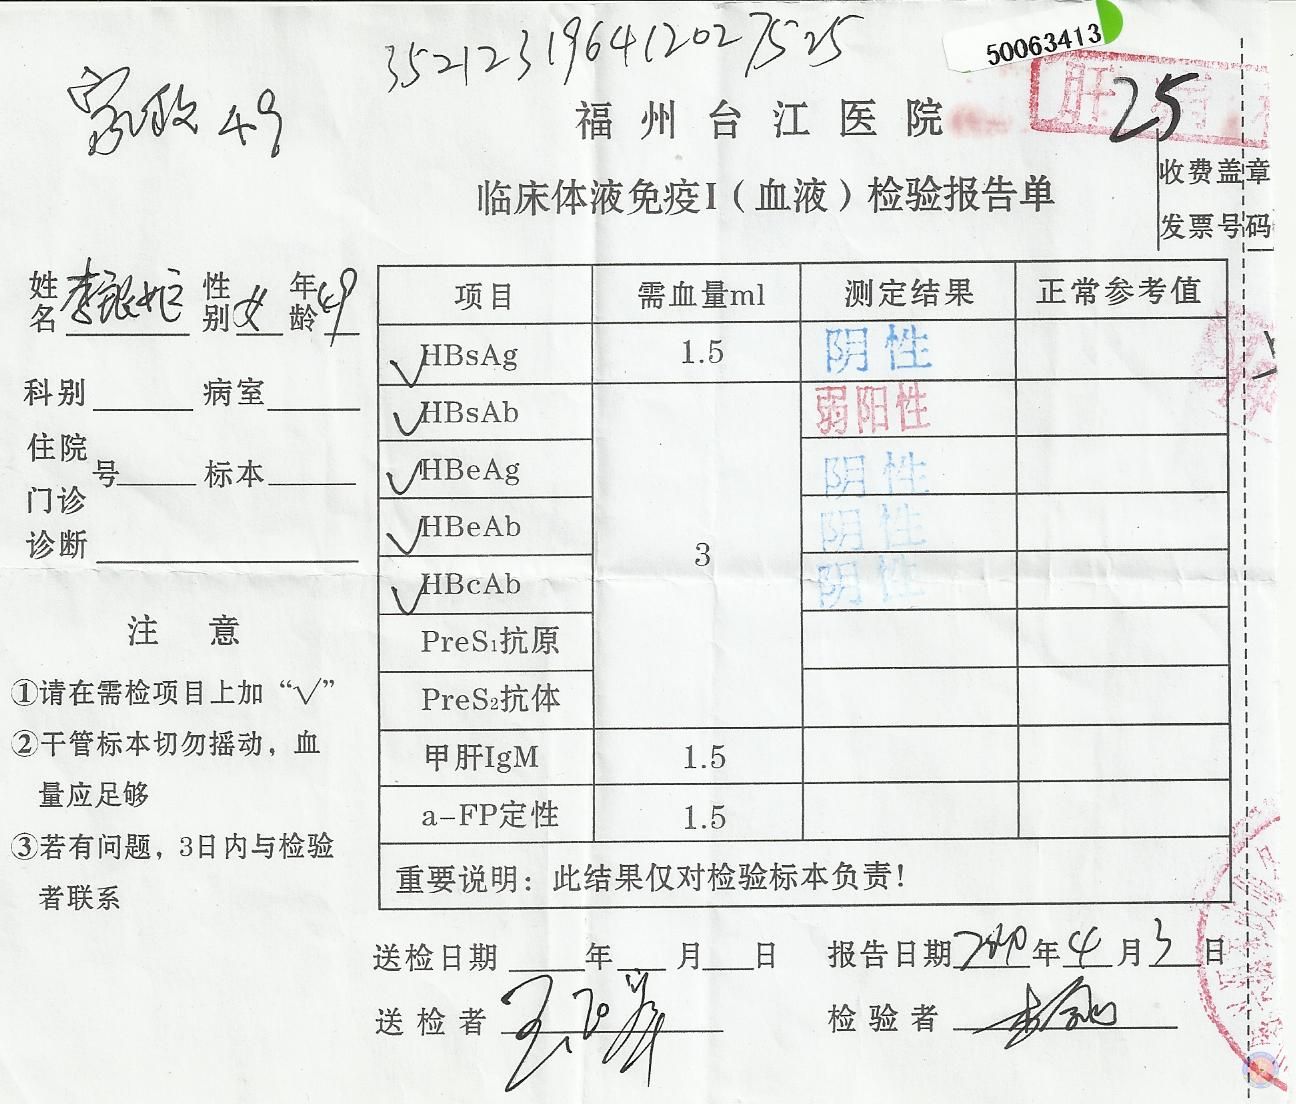 352123196412027525
50063413
家政 49
25
福州台江医院
临床体液免疫I（血液）检验报告单
收费盖章
发票号码
姓名 李银妃 性别 女 年龄 49
科别 病室
住院
门诊 号 标本
诊断
注 意
①请在需检项目上加“√”
②干管标本切勿摇动，血
量应足够
③若有问题，3日内与检验
者联系
项目 需血量ml 测定结果 正常参考值
√HBsAg 1.5 阴性
√HBsAb 弱阳性
√HBeAg 阴性
√HBeAb 3 阴性
√HBcAb 阴性
PreS₁抗原
PreS₂抗体
甲肝IgM 1.5
a-FP定性 1.5
重要说明：此结果仅对检验标本负责！
送检日期 年 月 日 报告日期 年 4 月 3 日
送检者 检验者